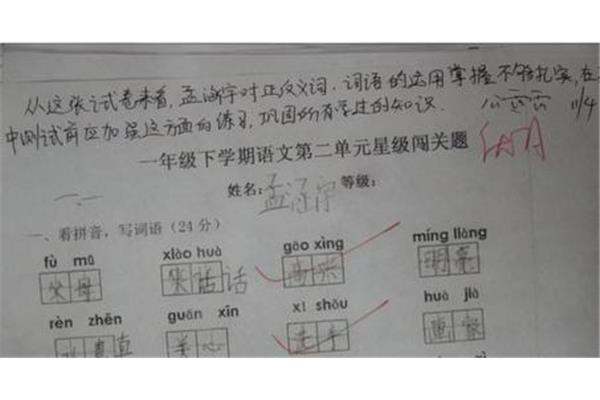 从这张试卷来看,孟涵宇对正反义词、词语的运用掌握不够扎实,在
中测试前应加强这方面的练习,巩固所有学过的知识. 11/4
一年级下学期语文第二单元星级闯关题
姓名:孟涵宇等级:
一、看拼音,写词语(24 分)
fù mǔ xiào huà gāo xìng míng liàng
父母 笑话话 高兴 明亮
rèn zhēn guān xīn xǐ shǒu huà jiā
真直 关心 洗手 画家